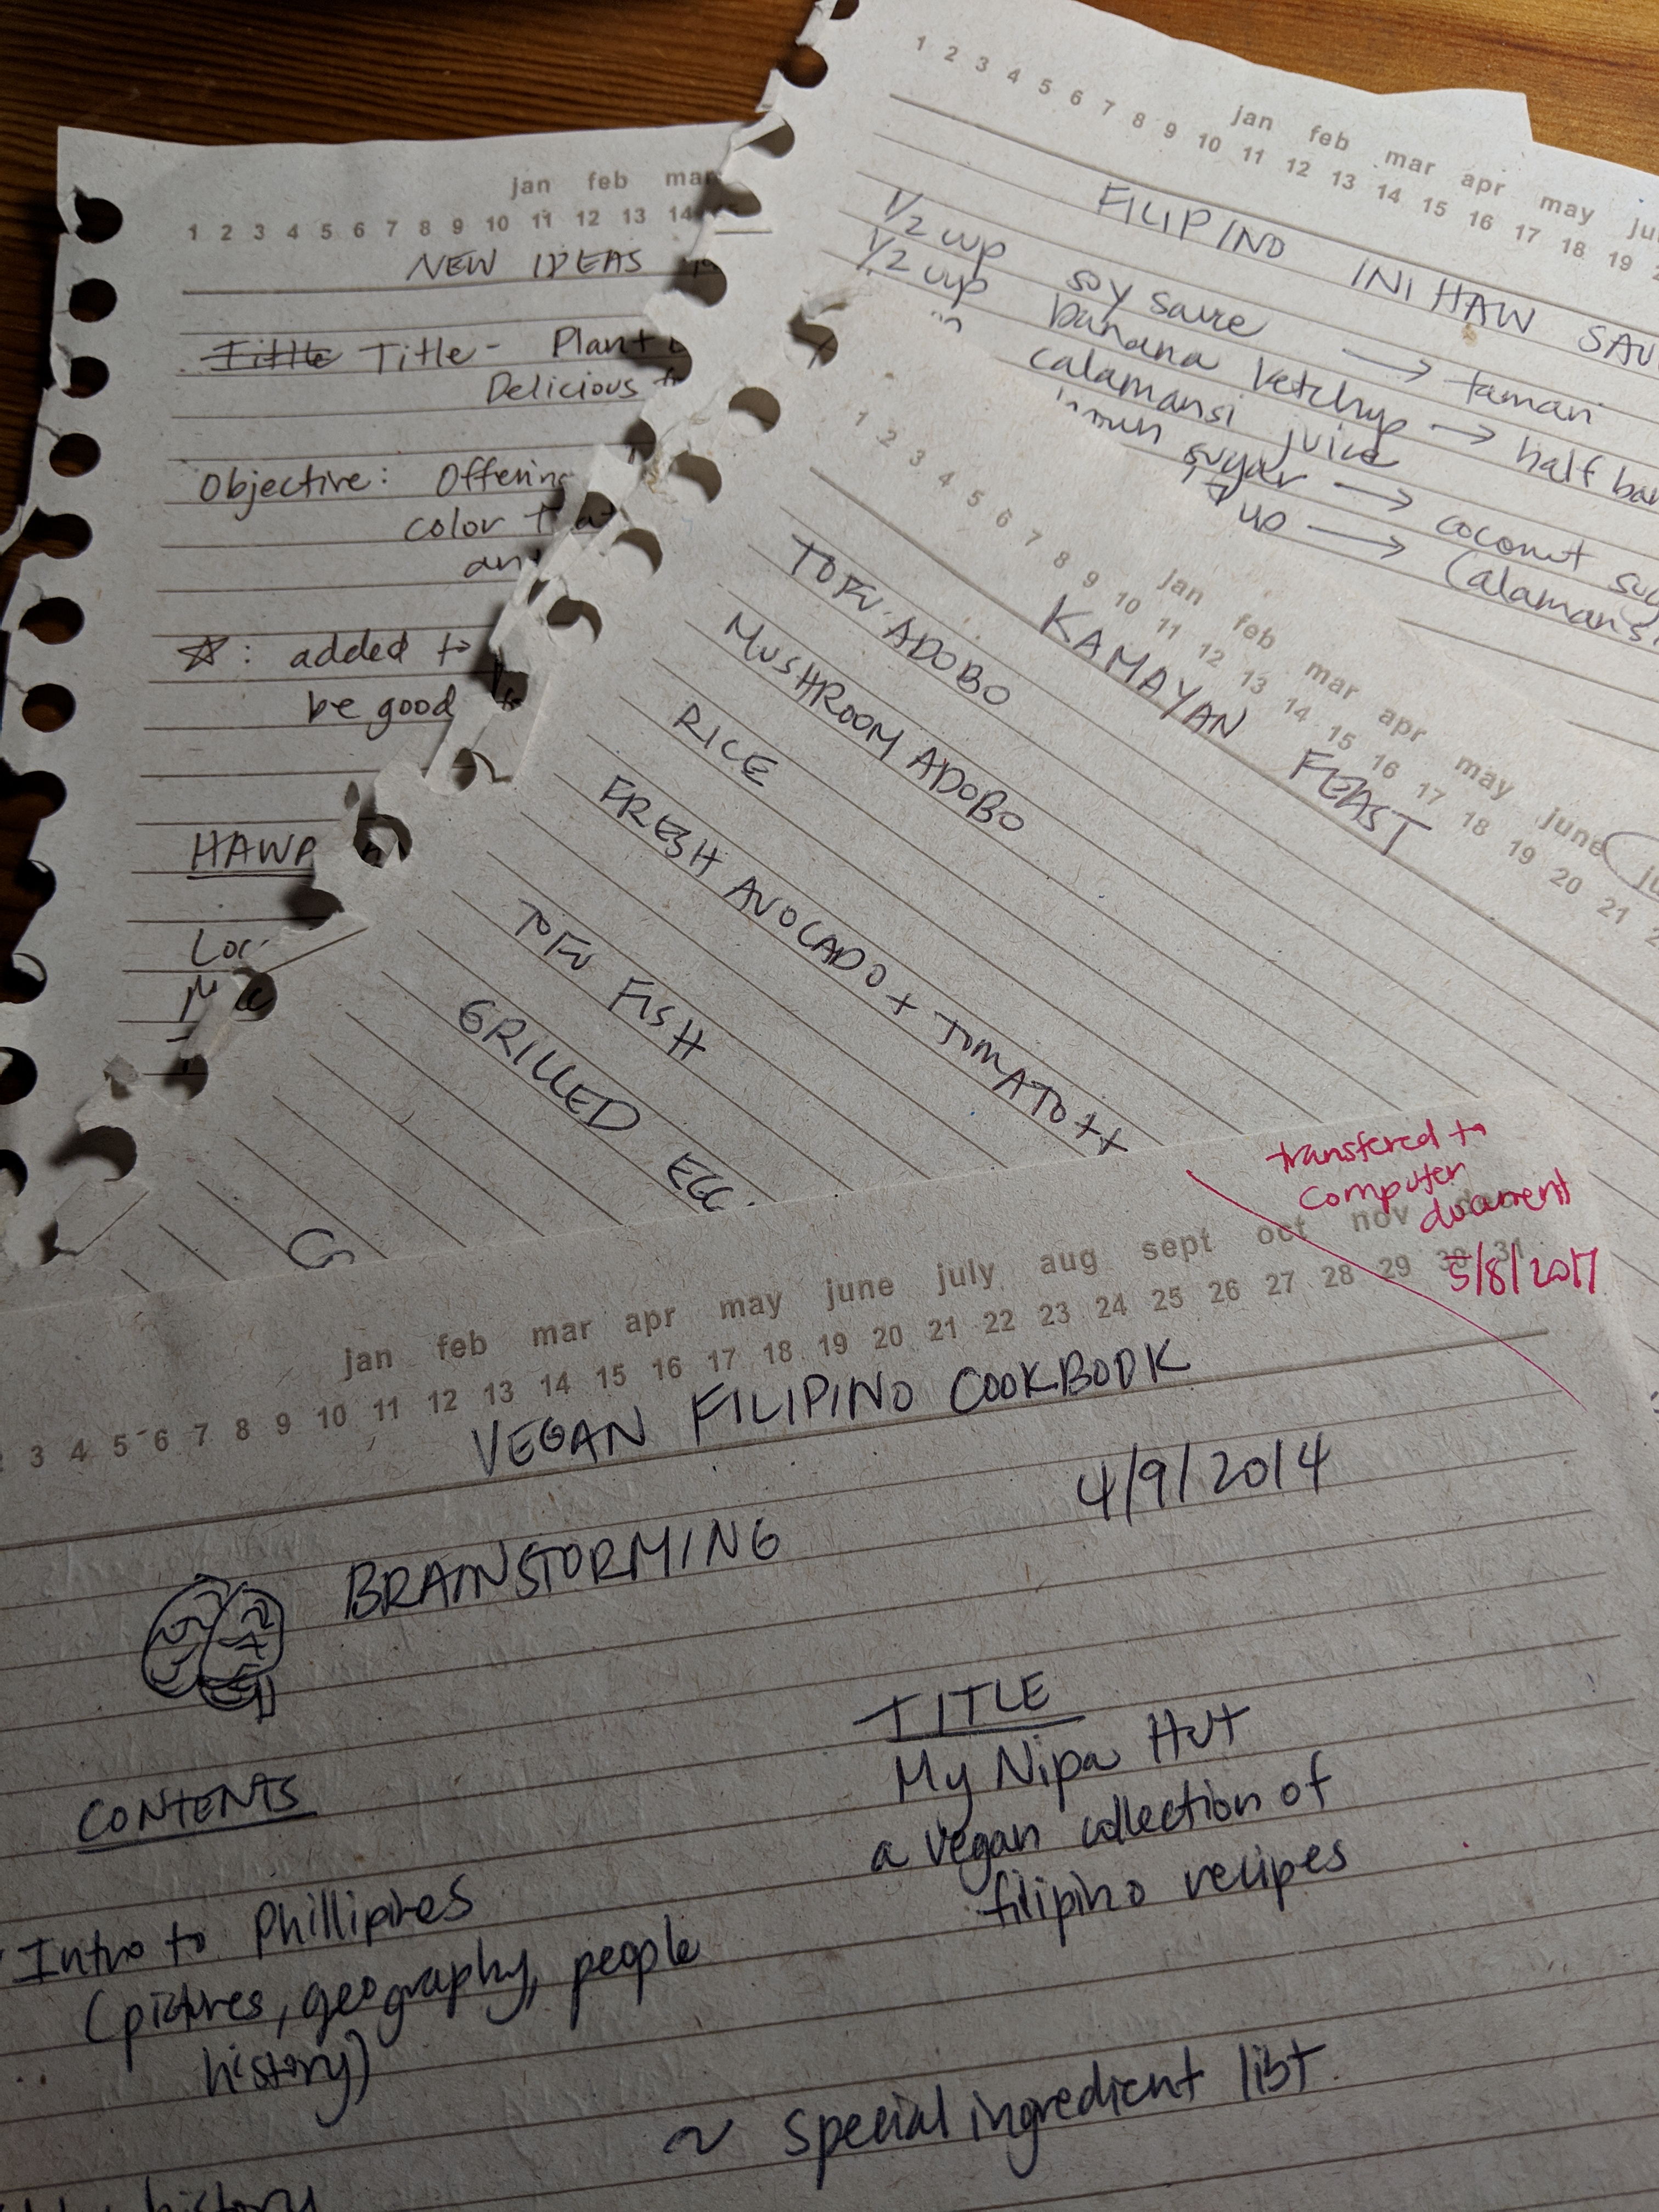 jan feb mar
1 2 3 4 5 6 7 8 9 10 11 12 13 14
NEW IDEAS
Title - Plant
Delicious
Objective: Offering
color that
an
☆: added to
be good
HAWA
Loc
1 2 3 4 5 6 7 8 9 10 11 12 13 14 15 16 17 18 19
jan feb mar apr may ju
FILIPINO INIHAW SAU
1/2 cup soy sauce → tamari
1/2 cup banana ketchup → half ban
calamansi juice
sugar → coconut sug
up → Calamansi
1 2 3 4 5 6 7 8 9 10 11 12 13 14 15 16 17 18 19 20 21
jan feb mar apr may june ju
KAMAYAN FEAST
TOFU ADOBO
MUSHROOM ADOBO
RICE
FRESH AVOCADO + TOMATO ++
TOFU FISH
GRILLED EGG
transfered to
computer
document
5/8/2017
jan feb mar apr may june july aug sept oct nov dec
3 4 5 6 7 8 9 10 11 12 13 14 15 16 17 18 19 20 21 22 23 24 25 26 27 28 29 30 31
VEGAN FILIPINO COOKBOOK
4/9/2014
BRAINSTORMING
TITLE
My Nipa Hut
a vegan collection of
filipino recipes
CONTENTS
Intro to Phillipines
(pictures, geography, people
history)
~ special ingredient list
history